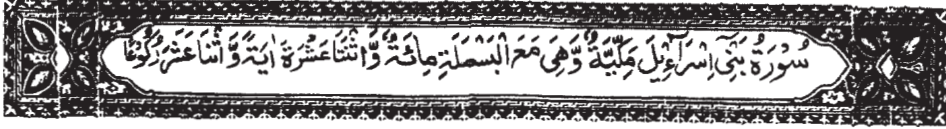 سُوْرَةُ بَنِیْۤ اِسْرَآءِیْلَ مَکِّیَّةٌ وَّھِیَ مَعَ الْبَسْمَلَةِ مِائَةٌ وَّاثْنَتَا عَشْرَةَ اٰیَةً وَّاثْنَا عَشَرَ رُکُوْعًا